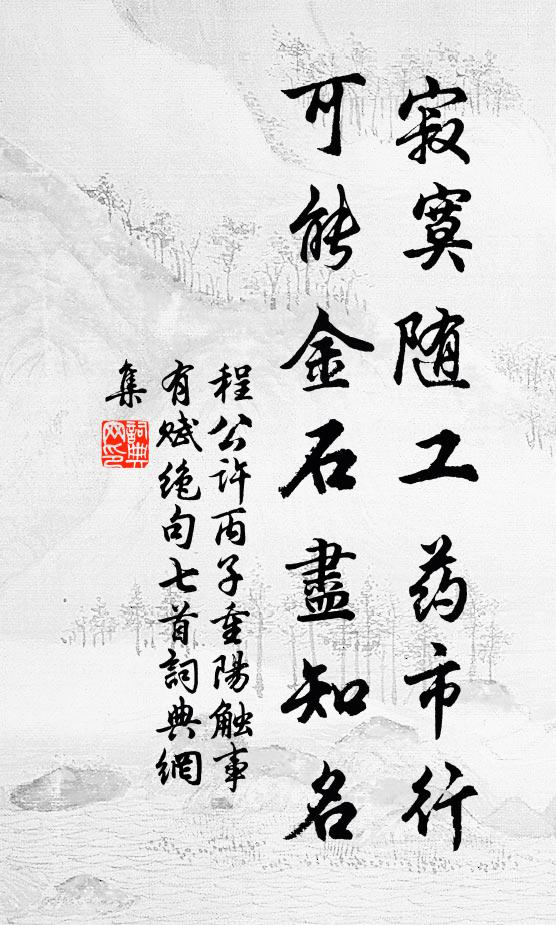 寂寞随工药市行
可能金石盡知名
程公许丙子重陽触事
有赋绝句七首詞典網
集
詞典
网印